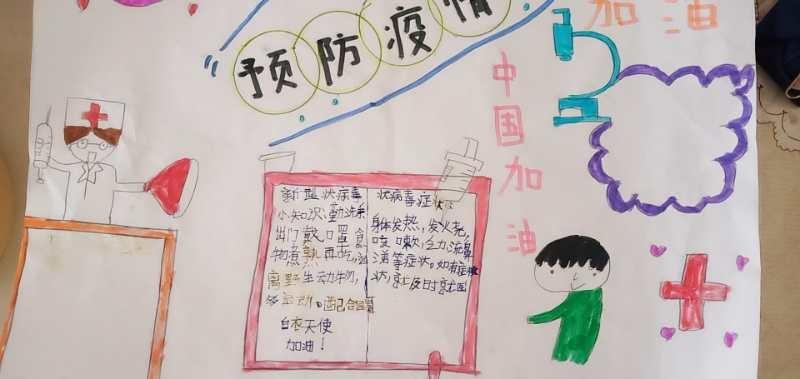 预防疫情
加油
中国加油
新型状病毒
小知识:勤洗手
出门戴口罩食
物煮熟再吃,远
离野生动物,
多运动。配合
白衣天使
加油!
状病毒症状
身体发热,发火烧,
咳嗽,乏力流鼻
涕等症状。如有症
状,就及时就医